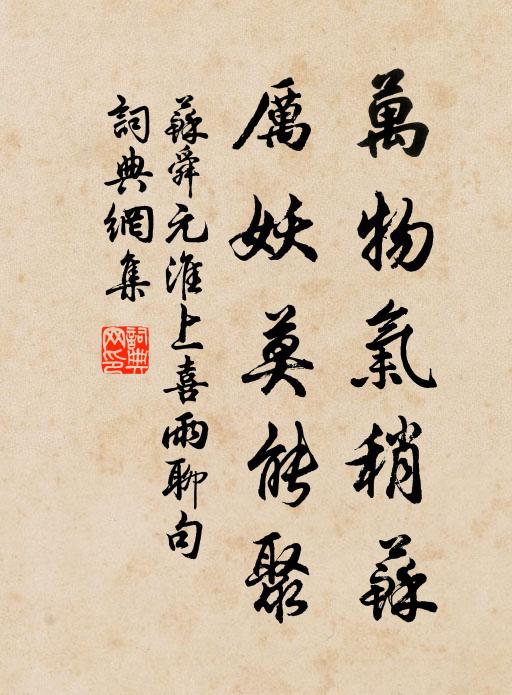 萬物氣稍蘇
厲妖莫能聚
蘇舜元淮上喜雨聊句
詞典網集
詞典網印